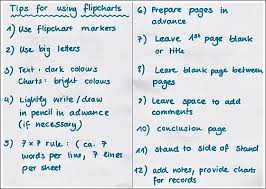 Tips for using flipcharts
1) Use flipchart markers
2) Use big letters
3) Text : dark colours
Charts : bright colours
4) Lightly write / draw
in pencil in advance
(if necessary)
5) 7 x 7 rule : ( ca. 7
words per line, 7 lines
per sheet
6) Prepare pages in
advance
7) Leave 1st page blank
or title
8) Leave blank page between
pages
9) Leave space to add
comments
10) conclusion page
11) stand to side of stand
12) add notes, provide charts
for records